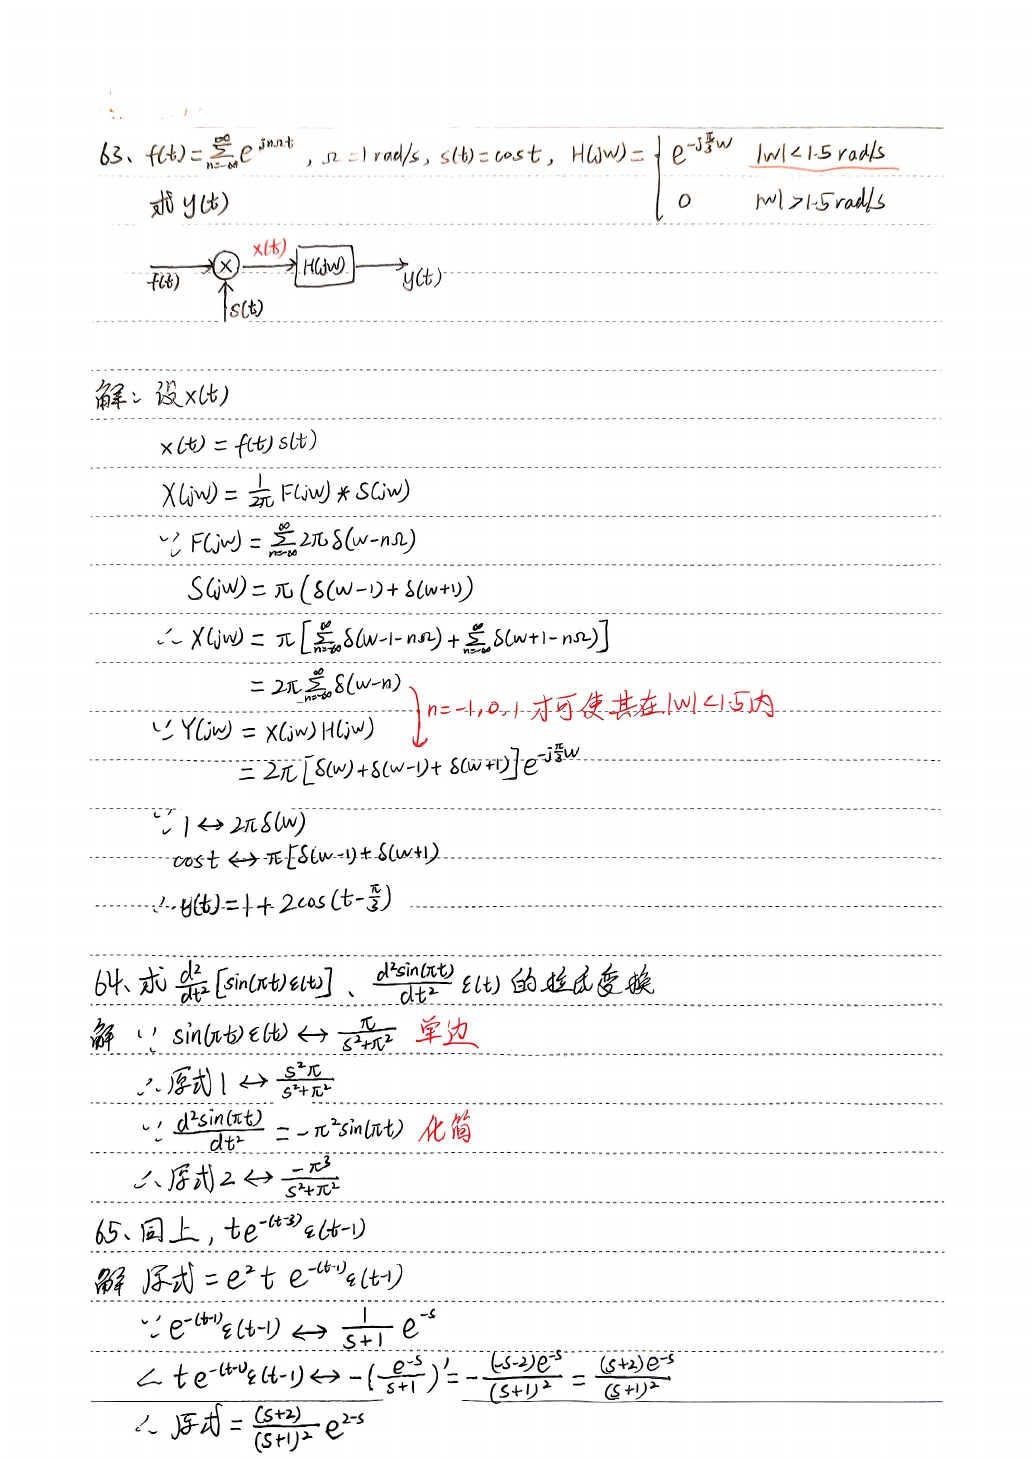 63、f(t)=∑_{n=-∞}^{∞} e^{jnΩt} , Ω=1 rad/s, s(t)=cost, H(jw)= { e^{-j\frac{π}{3}w} |w|<1.5 rad/s
0 |w|>1.5 rad/s
求 y(t)
x(t)
f(t) × H(jw) y(t)
s(t)
解：设x(t)
x(t)=f(t)s(t)
X(jw)=\frac{1}{2π}F(jw)*S(jw)
∵ F(jw)=∑_{n=-∞}^{∞}2πδ(w-nΩ)
S(jw)=π(δ(w-1)+δ(w+1))
∴ X(jw)=π[∑_{n=-∞}^{∞}δ(w-1-nΩ)+∑_{n=-∞}^{∞}δ(w+1-nΩ)]
=2π∑_{n=-∞}^{∞}δ(w-n)
n=-1,0,1 才可使其在|w|<1.5内
∵ Y(jw)=X(jw)H(jw)
=2π[δ(w)+δ(w-1)+δ(w+1)]e^{-j\frac{π}{3}w}
∵ 1↔2πδ(w)
cost↔π[δ(w-1)+δ(w+1)
∴ y(t)=1+2cos(t-\frac{π}{3})
64、求 \frac{d²}{dt²}[sin(πt)ε(t)]、\frac{d²sin(πt)}{dt²}ε(t) 的拉氏变换
解 ∵ sin(πt)ε(t)↔\frac{π}{s²+π²} 单边
∴ 原式1↔\frac{s²π}{s²+π²}
∵ \frac{d²sin(πt)}{dt²}=-π²sin(πt) 化简
∴ 原式2↔\frac{-π³}{s²+π²}
65、同上, te^{-(t-3)}ε(t-1)
解 原式=e²t e^{-(t-1)}ε(t-1)
∵ e^{-(t-1)}ε(t-1)↔\frac{1}{s+1}e^{-s}
∠ te^{-(t-1)}ε(t-1)↔-(\frac{e^{-s}}{s+1})'=-\frac{(-s-2)e^{-s}}{(s+1)²}=\frac{(s+2)e^{-s}}{(s+1)²}
∴ 原式=\frac{(s+2)}{(s+1)²}e^{2-s}